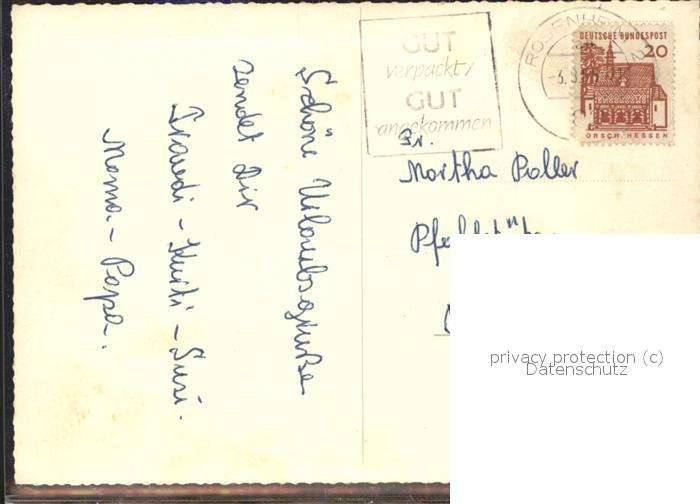 Schöne Urlaubsgrüße
sendet Dir
Traudi - Kurti - Susi.
Mama - Papa.
GUT
verpackt/
GUT
angekommen
DEUTSCHE BUNDESPOST
20
LORSCH HESSEN
Fr.
Martha Poller
privacy protection (c)
Datenschutz